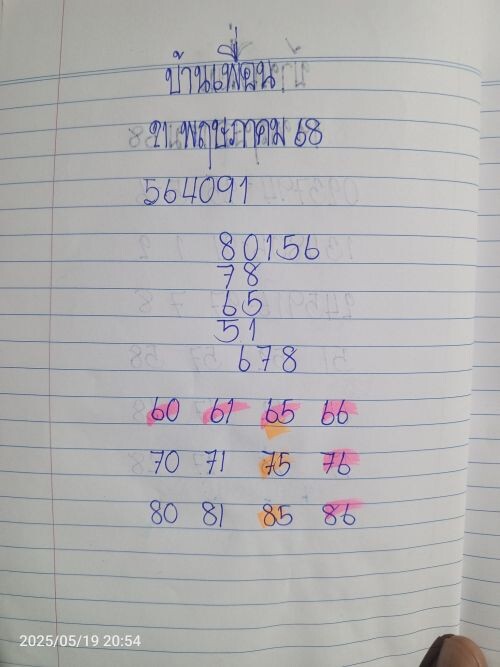 บ้านเพื่อน
21 พฤษภาคม 68
564091
80156
78
65
51
678
60 61 65 66
70 71 75 76
80 81 85 86
2025/05/19 20:54